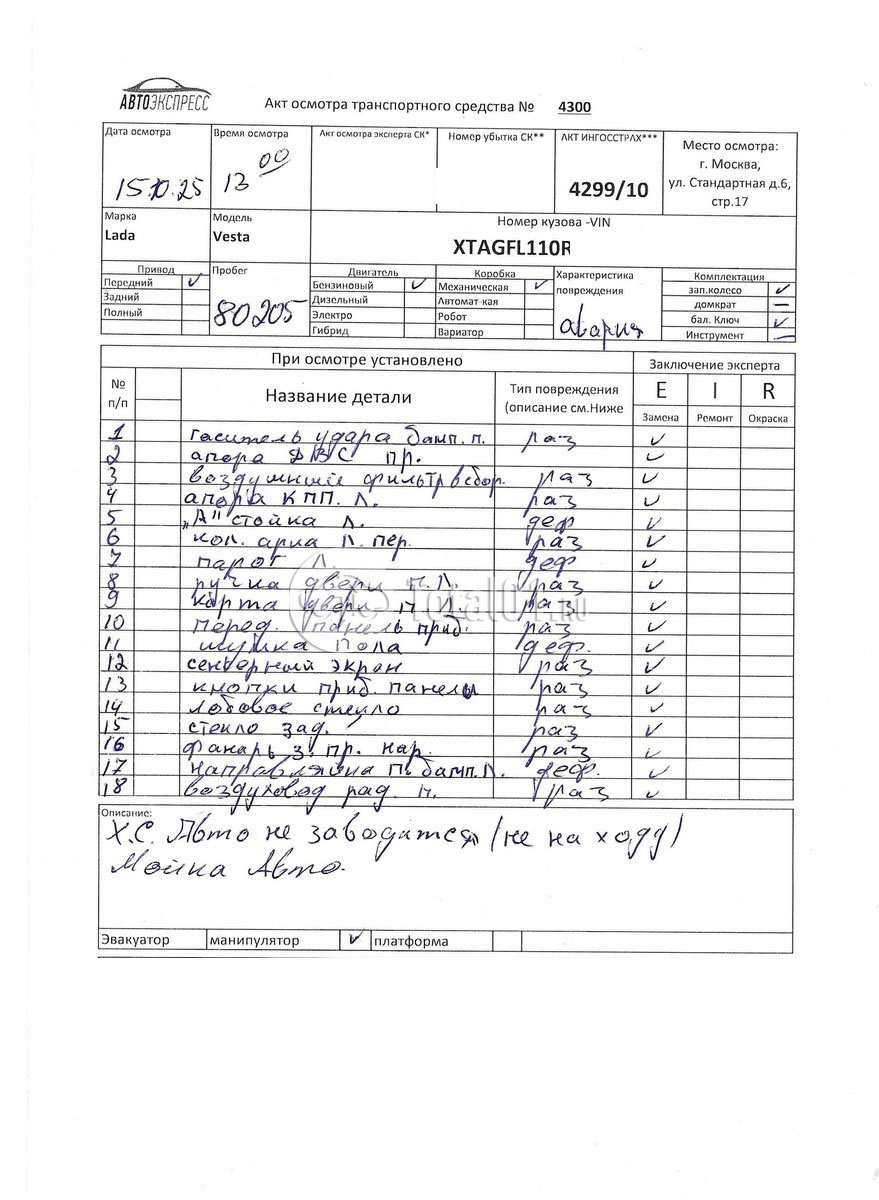 АВТОЭКСПРЕСС
Акт осмотра транспортного средства № 4300
Дата осмотра
15.10.25
Время осмотра
13 00
Акт осмотра эксперта СК*
Номер убытка СК**
АКТ ИНГОССТРАХ***
4299/10
Место осмотра:
г. Москва,
ул. Стандартная д.6,
стр.17
Марка
Lada
Модель
Vesta
Номер кузова -VIN
XTAGFL110R
Привод
Передний ✓
Задний
Полный
Пробег
80205
Двигатель
Бензиновый ✓
Дизельный
Электро
Гибрид
Коробка
Механическая ✓
Автомат-кая
Робот
Вариатор
Характеристика
повреждения
авария
Комплектация
зап.колесо ✓
домкрат —
бал. Ключ ✓
Инструмент —
При осмотре установлено
Заключение эксперта
№
п/п
Название детали
Тип повреждения
(описание см.Ниже
E I R
Замена Ремонт Окраска
1 гаситель удара бамп. п. раз ✓
2 апора ДВС пр. ✓
3 воздушный фильтр в сбор. раз ✓
4 апора КПП. Л. раз ✓
5 „А" стойка Л. деф ✓
6 кол. арка П. пер. раз ✓
7 парог Л. деф ✓
8 ручка двери П.Л. раз ✓
9 карта двери П.Л. раз ✓
10 перед. панель приб. раз ✓
11 шумка пола деф. ✓
12 сенсерный экран раз ✓
13 кнопки приб. панелы раз ✓
14 лобовое стекло раз ✓
15 стекло зад. раз ✓
16 фанарь з. пр. нар. раз ✓
17 направляйка П. бамп. Л. деф. ✓
18 воздуховод рад. п. раз ✓
Описание:
Х.С. Авто не заводится (не на ходу)
Мойка Авто.
Эвакуатор манипулятор ✓ платформа
Total01.RU